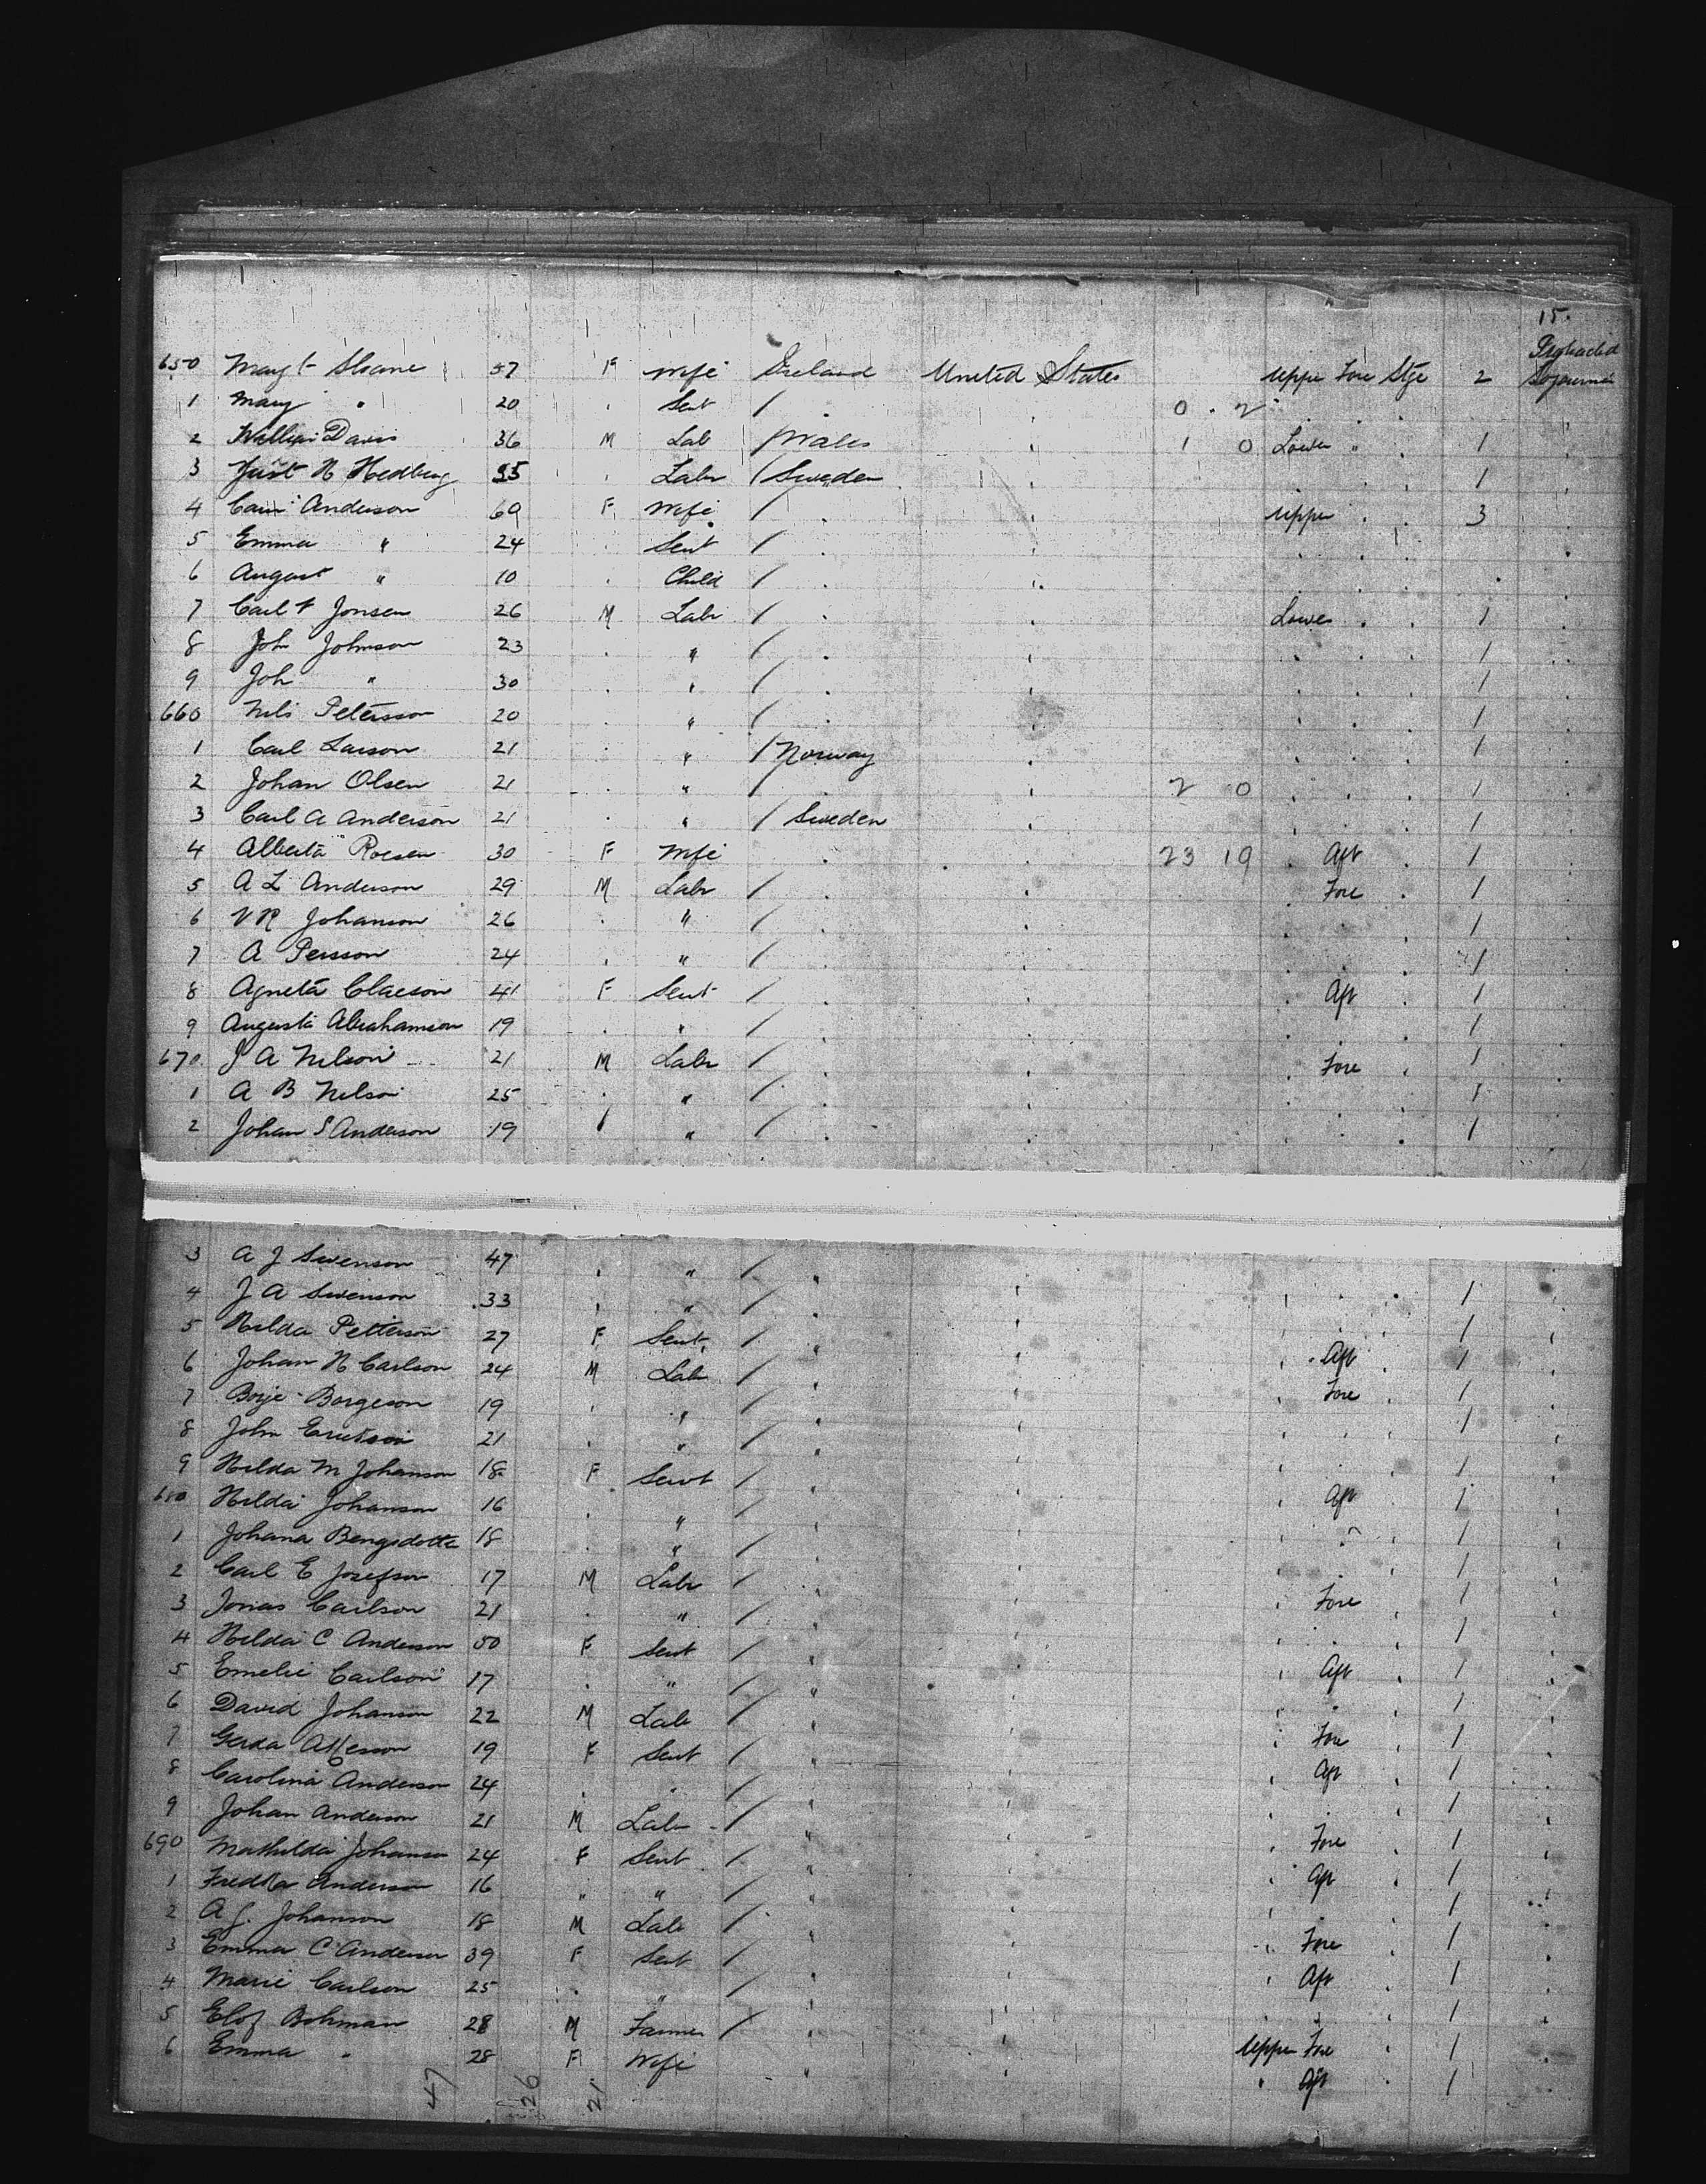 15.
Protracted
650 Margt Sloane 57 F Wife Ireland United States Upper Fore Stge 2 Sojourner
1 Mary " 20 . Sevt / . 0 . 2
2 William Davis 36 M Lab / Wales . 1 0 Lower " . 1
3 Just N Hedberg 35 . Labr / Sweden . 1
4 Anderson 69 F Wife / . . Upper . . 3
5 Emma " 24 . Sevt / . .
6 August " 10 . Child / . .
7 Carl F Jonsen 26 M Labr / . . Lower . . 1
8 Joh Johnson 23 . " / . . 1
9 Joh " 30 . " / . . 1
660 Nils Petersson 20 . " / . . 1
1 Carl Larson 21 . " / Norway . 1
2 Johan Olsen 21 . " / . . 2 0 1
3 Carl A Anderson 21 . " / Sweden . 1
4 Alberta Roesen 30 F Wife . . 23 19 . Aft . 1
5 A L Anderson 29 M Labr / . . Fore . 1
6 V R Johanson 26 . " / . . 1
7 A Persson 24 . " / . . 1
8 Agneta Claeson 41 F Sevt / . . Aft . 1
9 Augusta Abrahamson 19 . " / . . 1
670 J A Nelson 21 M Labr / . . Fore . 1
1 A B Nelson 25 . " / . . 1
2 Johan S Anderson 19 " " / . . 1
3 A J Swenson 47 . " / " . 1
4 J A Swenson 33 . " / " . 1
5 Hilda Petterson 27 F Sevt / " . Aft . 1
6 Johan N Carlson 24 M Lab / " . Fore . 1
7 Borje Borgeson 19 . " / " . 1
8 John Erickson 21 . " / " . 1
9 Hilda M Johanson 18 F Sevt / " . Aft 1
680 Hilda Johanson 16 . " / " . 1
1 Johana Bengsdotte 18 . " / " . 1
2 Carl E Josefson 17 M Labr / " . Fore . 1
3 Jonas Carlson 21 . " / " . 1
4 Hilda C Anderson 50 F Sevt / " . Aft . 1
5 Emelie Carlson 17 . " / " . 1
6 David Johanson 22 M Lab / " . Fore . 1
7 Gerda 19 F Sevt / " . Aft . 1
8 Carolina Anderson 24 . " / " . 1
9 Johan Anderson 21 M Labr / " . Fore . 1
690 Mathilda Johanson 24 F Sevt / " . Aft . 1
1 Anderson 16 " " / " . 1
2 A J. Johanson 18 M Lab / " . Fore . 1
3 Emma C Anderson 39 F Sevt / " . Aft . 1
4 Marie Carlson 25 . " / " . 1
5 Elof Bohman 28 M Farmer / " . Upper Fore . 1
6 Emma " 28 F Wife " . " Aft . 1
47 26 21